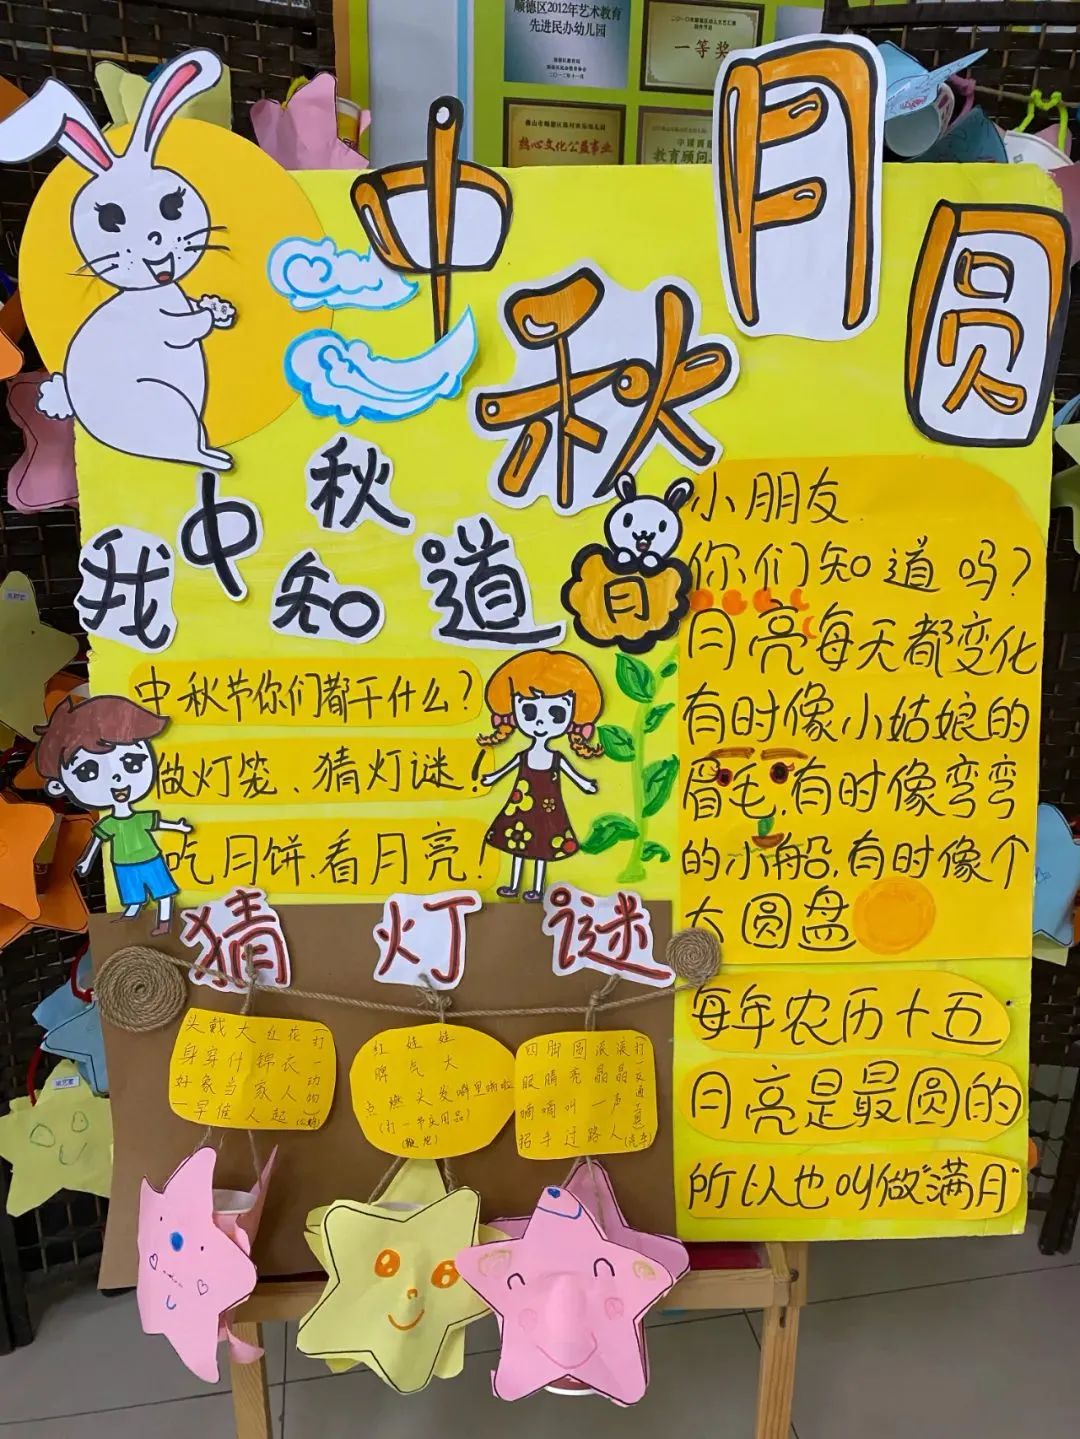 顺德区2012年艺术教育
先进民办幼儿园
一等奖
热心文化公益事业
教育顾问
中秋月圆
我中秋知道
月
中秋节你们都干什么？
做灯笼、猜灯谜！
吃月饼.看月亮！
小朋友
你们知道吗？
月亮每天都变化
有时像小姑娘的
眉毛,有时像弯弯
的小船,有时像个
大圆盘
每年农历十五
月亮是最圆的
所以也叫做“满月”
猜灯谜
头戴大红花(打
身穿什锦衣一
好象当家人动
一早催人起物)
(公鸡)
红娃娃
脾气大
点燃头发噼里啪啦
(打一节庆用品)
(鞭炮)
四脚圆滚滚(打
眼睛亮晶晶交
嘀嘀叫一声通
招手过路人
(汽车)